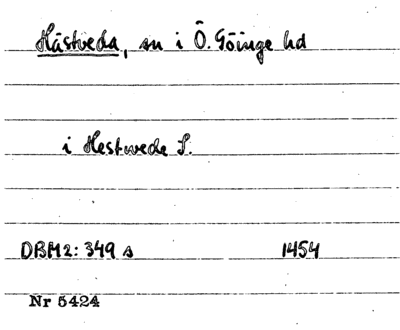 Hästveda, sn i Ö. Göinge hd
i Hestwede S.
DBM2: 349 s 1454
Nr 5424